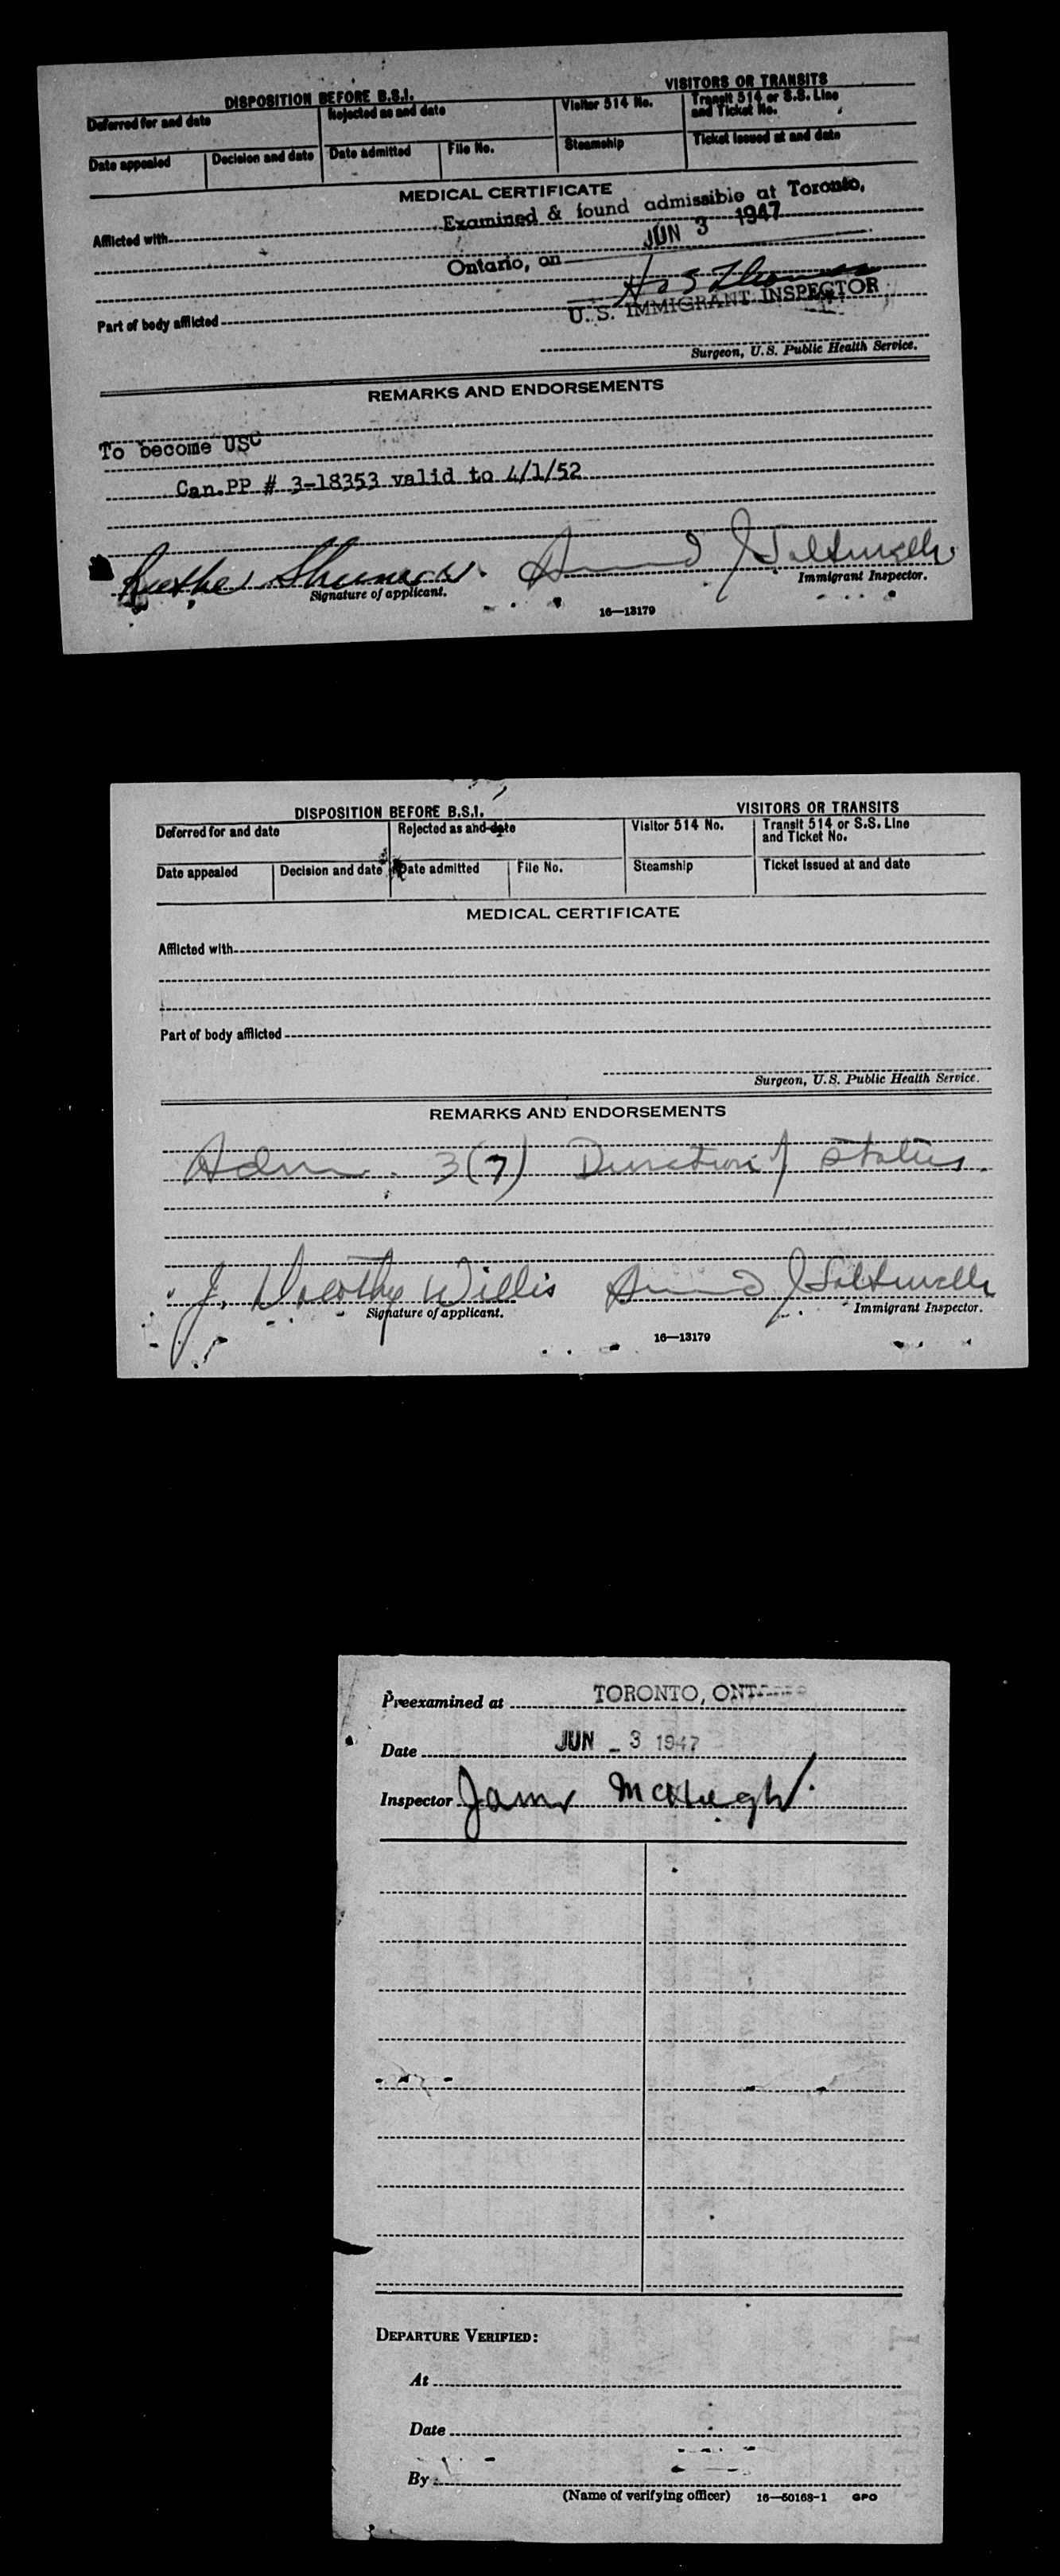 DISPOSITION BEFORE B.S.I. VISITORS OR TRANSITS
Deferred for and date Rejected as and date Visitor 514 No. Transit 514 or S.S. Line and Ticket No.
Date appealed Decision and date Date admitted File No. Steamship Ticket issued at and date
MEDICAL CERTIFICATE
Afflicted with Examined & found admissible at Toronto,
Ontario, on JUN 3 1947
U. S. IMMIGRANT INSPECTOR
Part of body afflicted
Surgeon, U.S. Public Health Service.
REMARKS AND ENDORSEMENTS
To become USC
Can.PP # 3-18353 valid to 4/1/52
Signature of applicant. Immigrant Inspector.
16—13179
DISPOSITION BEFORE B.S.I. VISITORS OR TRANSITS
Deferred for and date Rejected as and date Visitor 514 No. Transit 514 or S.S. Line and Ticket No.
Date appealed Decision and date Date admitted File No. Steamship Ticket issued at and date
MEDICAL CERTIFICATE
Afflicted with
Part of body afflicted
Surgeon, U.S. Public Health Service.
REMARKS AND ENDORSEMENTS
Adm. 3(7) Duration of status.
J. Dorothy Willis
Signature of applicant. Immigrant Inspector.
16—13179
Preexamined at TORONTO,
Date JUN - 3 1947
Inspector James
DEPARTURE VERIFIED:
At
Date
By
(Name of verifying officer) 16—50168-1 GPO